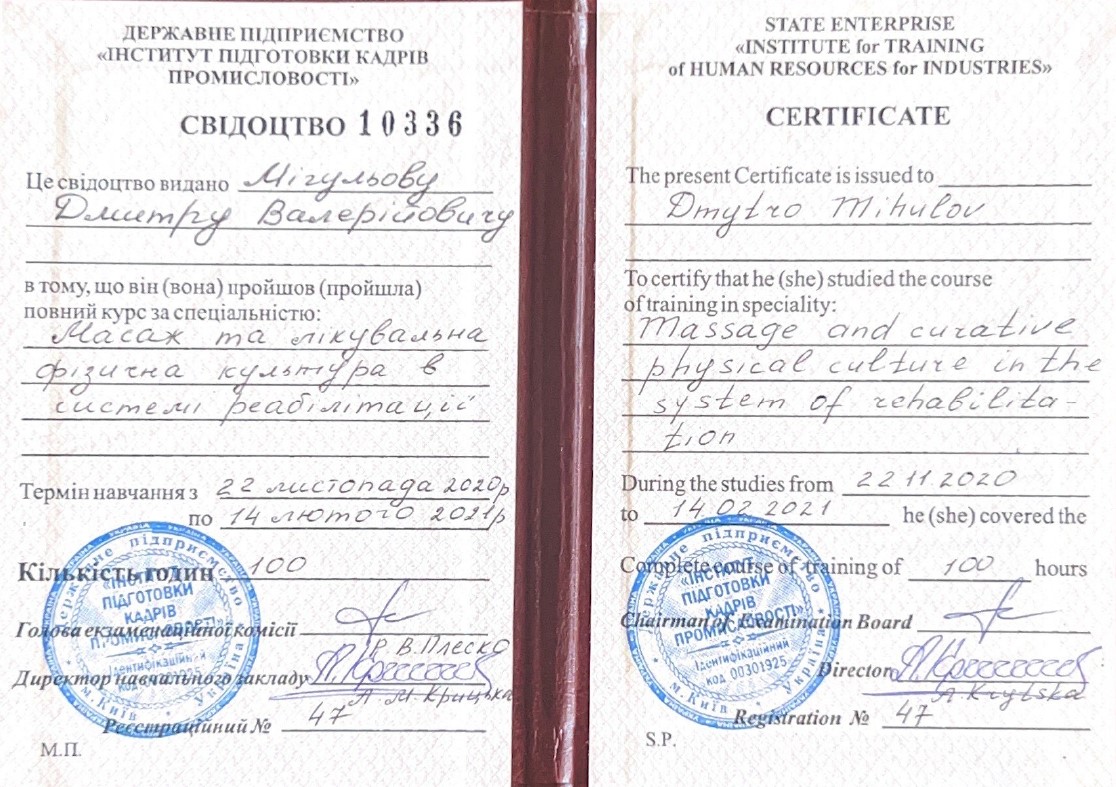 ДЕРЖАВНЕ ПІДПРИЄМСТВО
«ІНСТИТУТ ПІДГОТОВКИ КАДРІВ
ПРОМИСЛОВОСТІ»
СВІДОЦТВО 10336
Це свідоцтво видано Мігульову
Дмитру Валерійовичу
в тому, що він (вона) пройшов (пройшла)
повний курс за спеціальністю:
Масаж та лікувальна
фізична культура в
системі реабілітації
Термін навчання з 22 листопада 2020р
по 14 лютого 2021р
Кількість годин 100
Голова екзаменаційної комісії
Р.В.Плеско
Директор навчального закладу
А.М.Крицька
Реєстраційний № 47
М.П.
Державне підприємство
«ІНСТИТУТ
ПІДГОТОВКИ
КАДРІВ
ПРОМИСЛОВОСТІ»
Ідентифікаційний
код 00301925
м.Київ * Україна
STATE ENTERPRISE
«INSTITUTE for TRAINING
of HUMAN RESOURCES for INDUSTRIES»
CERTIFICATE
The present Certificate is issued to
Dmytro Mihulov
To certify that he (she) studied the course
of training in speciality:
Massage and curative
physical culture in the
system of rehabilita-
tion
During the studies from 22 11.2020
to 14.02 2021 he (she) covered the
Complete course of training of 100 hours
Chairman of Examination Board
Director
A Krytska
Registration № 47
S.P.
Державне підприємство
«ІНСТИТУТ
ПІДГОТОВКИ
КАДРІВ
ПРОМИСЛОВОСТІ»
Ідентифікаційний
код 00301925
м.Київ * Україна